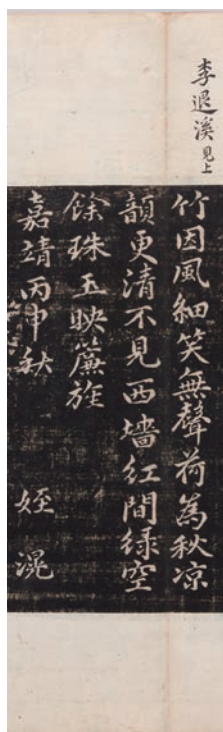 李退溪 見上
竹因風細笑無聲荷為秋凉
韻更清不見西墻紅間緑空
餘珠玉映簾旌
嘉靖丙申秋 姪 滉